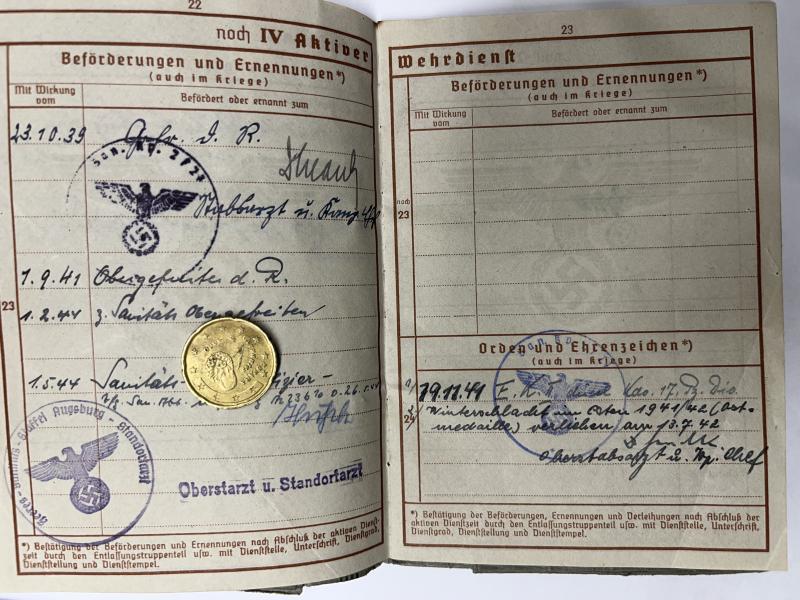 22
noch IV Aktiver
Beförderungen und Ernennungen*)
(auch im Kriege)
Mit Wirkung vom
Befördert oder ernannt zum
23.10.39 Gefr. d. R.
San. Kp. 2/27
Stabsarzt u. Komp.
1.9.41 Obergefreiter d. R.
23
1.2.44 z. Sanitäts Obergefreiten
1.5.44 Sanitäts-
Heeres-Sanitäts-Staffel Augsburg - Standortarzt
Oberstarzt u. Standortarzt
*) Bestätigung der Beförderungen und Ernennungen nach Abschluß der aktiven Dienst-
zeit durch den Entlassungstruppenteil usw. mit Dienststelle, Unterschrift, Dienstgrad,
Dienststellung und Dienststempel.
23
Wehrdienst
Beförderungen und Ernennungen*)
(auch im Kriege)
Mit Wirkung vom
Befördert oder ernannt zum
noch
23
Orden und Ehrenzeichen*)
(auch im Kriege)
19.11.41 17. Div.
24
Winterschlacht im Osten 1941/42 (Ost-
medaille) verliehen am 13.7.42
Oberstabsarzt u. Kp. Chef
*) Bestätigung der Beförderungen, Ernennungen und Verleihungen nach Abschluß der
aktiven Dienstzeit durch den Entlassungstruppenteil usw. mit Dienststelle, Unterschrift,
Dienstgrad, Dienststellung und Dienststempel.